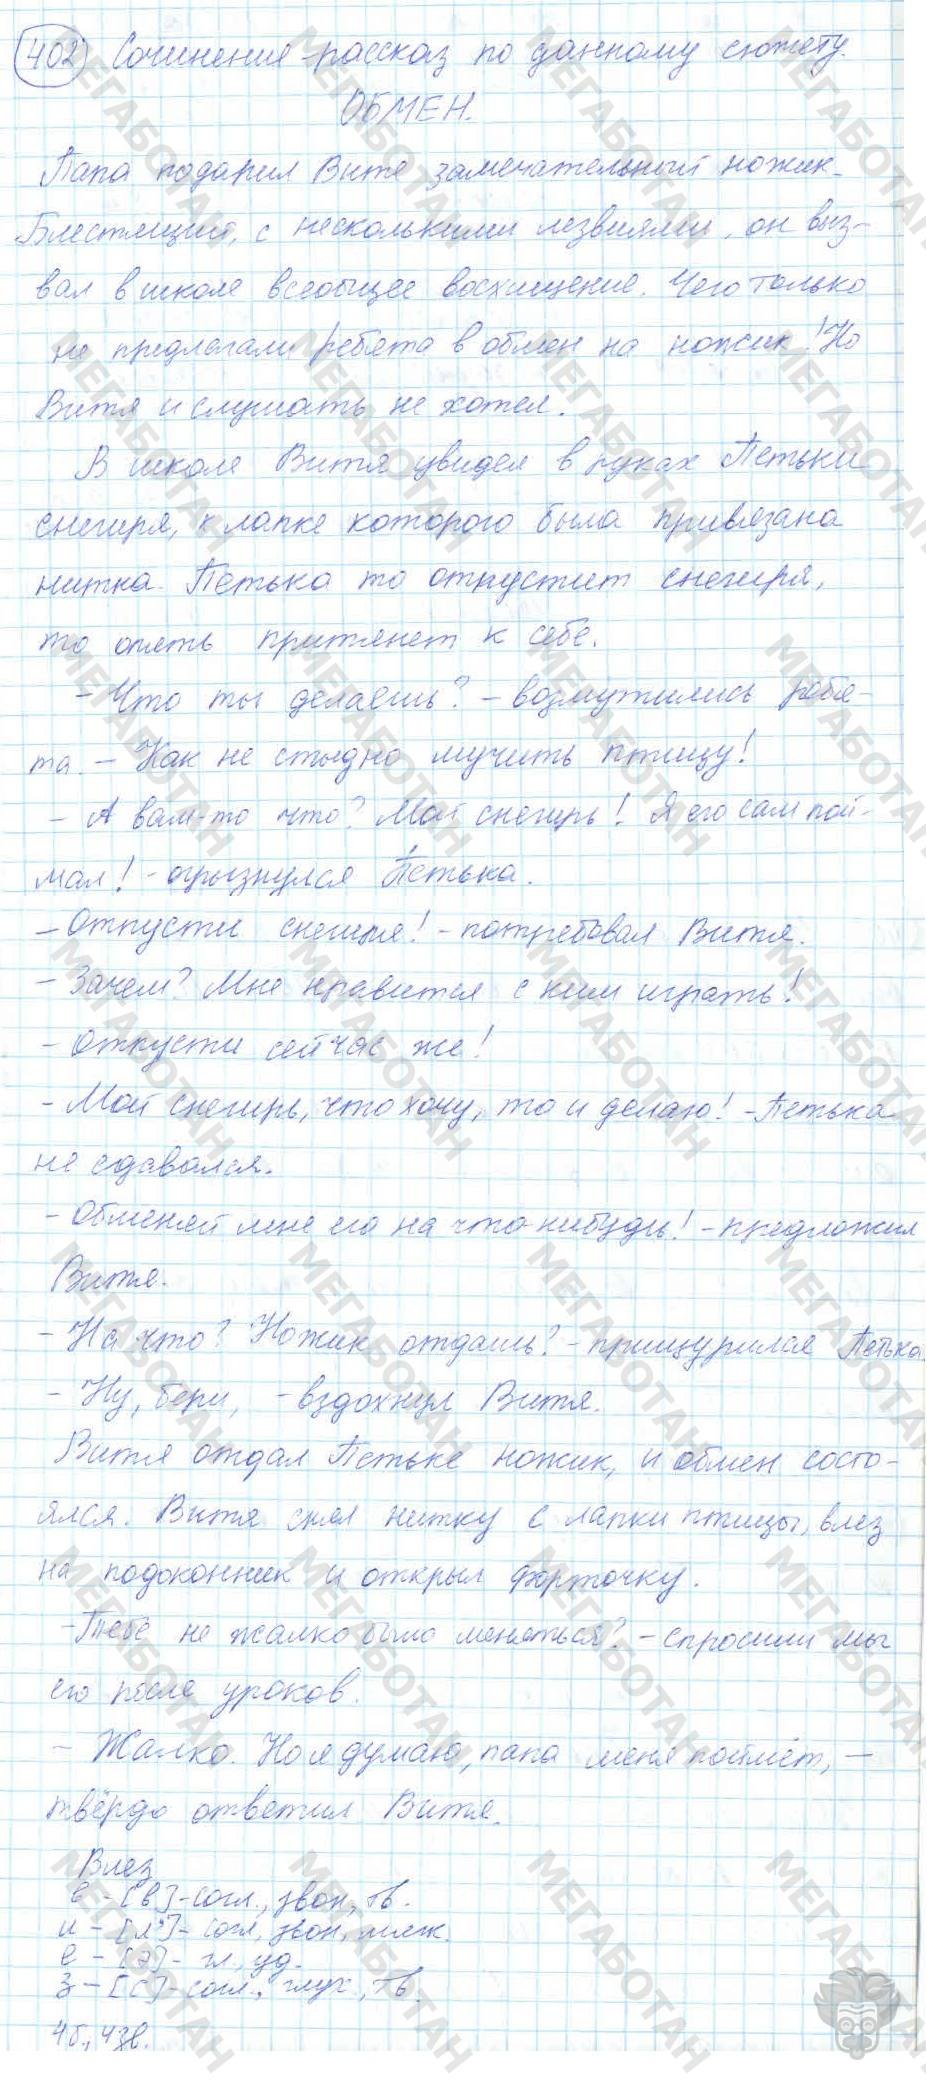 402 Сочинение-рассказ по данному сюжету.
ОБМЕН.
Папа подарил Вите замечательный ножик.
Блестящий, с несколькими лезвиями, он выз-
вал в школе всеобщее восхищение. Чего только
не предлагали ребята в обмен на ножик! Но
Витя и слушать не хотел.
В школе Витя увидел в руках Петьки
снегиря, к лапке которого была привязана
нитка. Петька то отпустит снегиря,
то опять притянет к себе.
- Что ты делаешь? - возмутились ребя-
та. - Как не стыдно мучить птицу!
- А вам-то что? Мой снегирь! Я его сам пой-
мал! - огрызнулся Петька.
- Отпусти снегиря! - потребовал Витя.
- Зачем? Мне нравится с ним играть!
- Отпусти сейчас же!
- Мой снегирь, что хочу, то и делаю! - Петька
не сдавался.
- Обменяй мне его на что-нибудь! - предложил
Витя.
- На что? Ножик отдашь? - прищурился Петька.
- Ну, бери, - вздохнул Витя.
Витя отдал Петьке ножик, и обмен состо-
ялся. Витя снял нитку с лапки птицы, влез
на подоконник и открыл форточку.
- Тебе не жалко было меняться? - спросили мы
его после уроков.
- Жалко. Но я думаю, папа меня поймёт, -
твёрдо ответил Витя.
Влез
в - [в] - согл., звон., тв.
л - [л'] - согл., звон., мягк.
е - [э] - гл., уд.
з - [с] - согл., глух., тв.
4б., 4зв.
МЕГАБОТАН